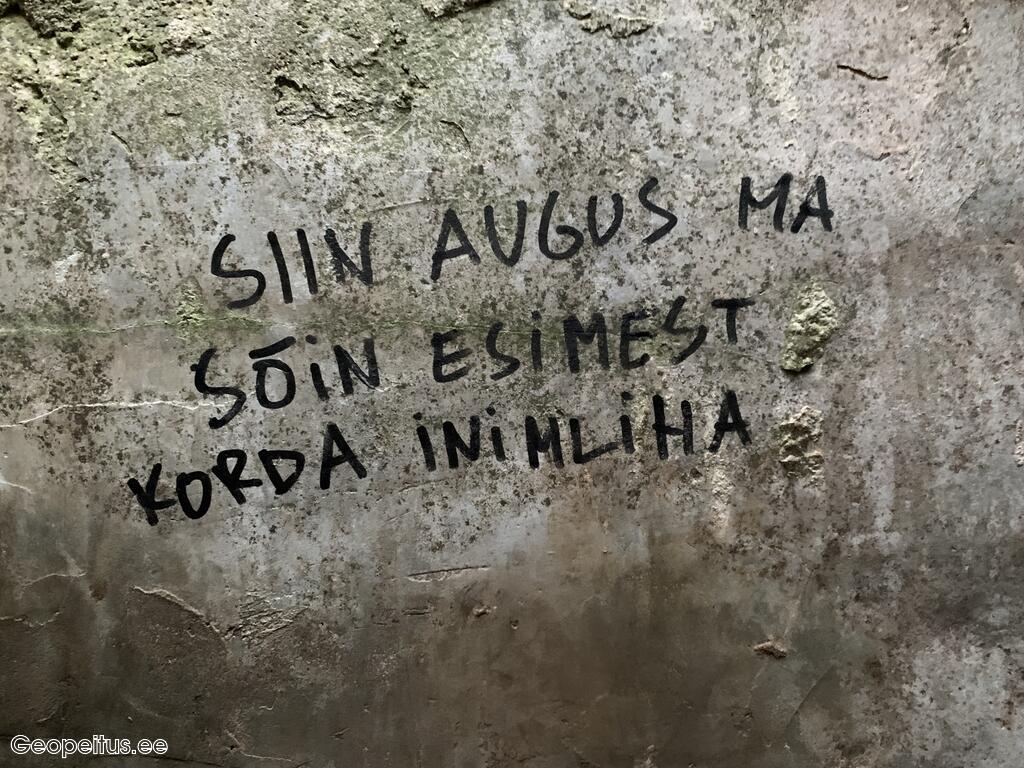 SIIN AUGUS MA
SÕIN ESIMEST
KORDA INIMLIHA
Geopeitus.ee